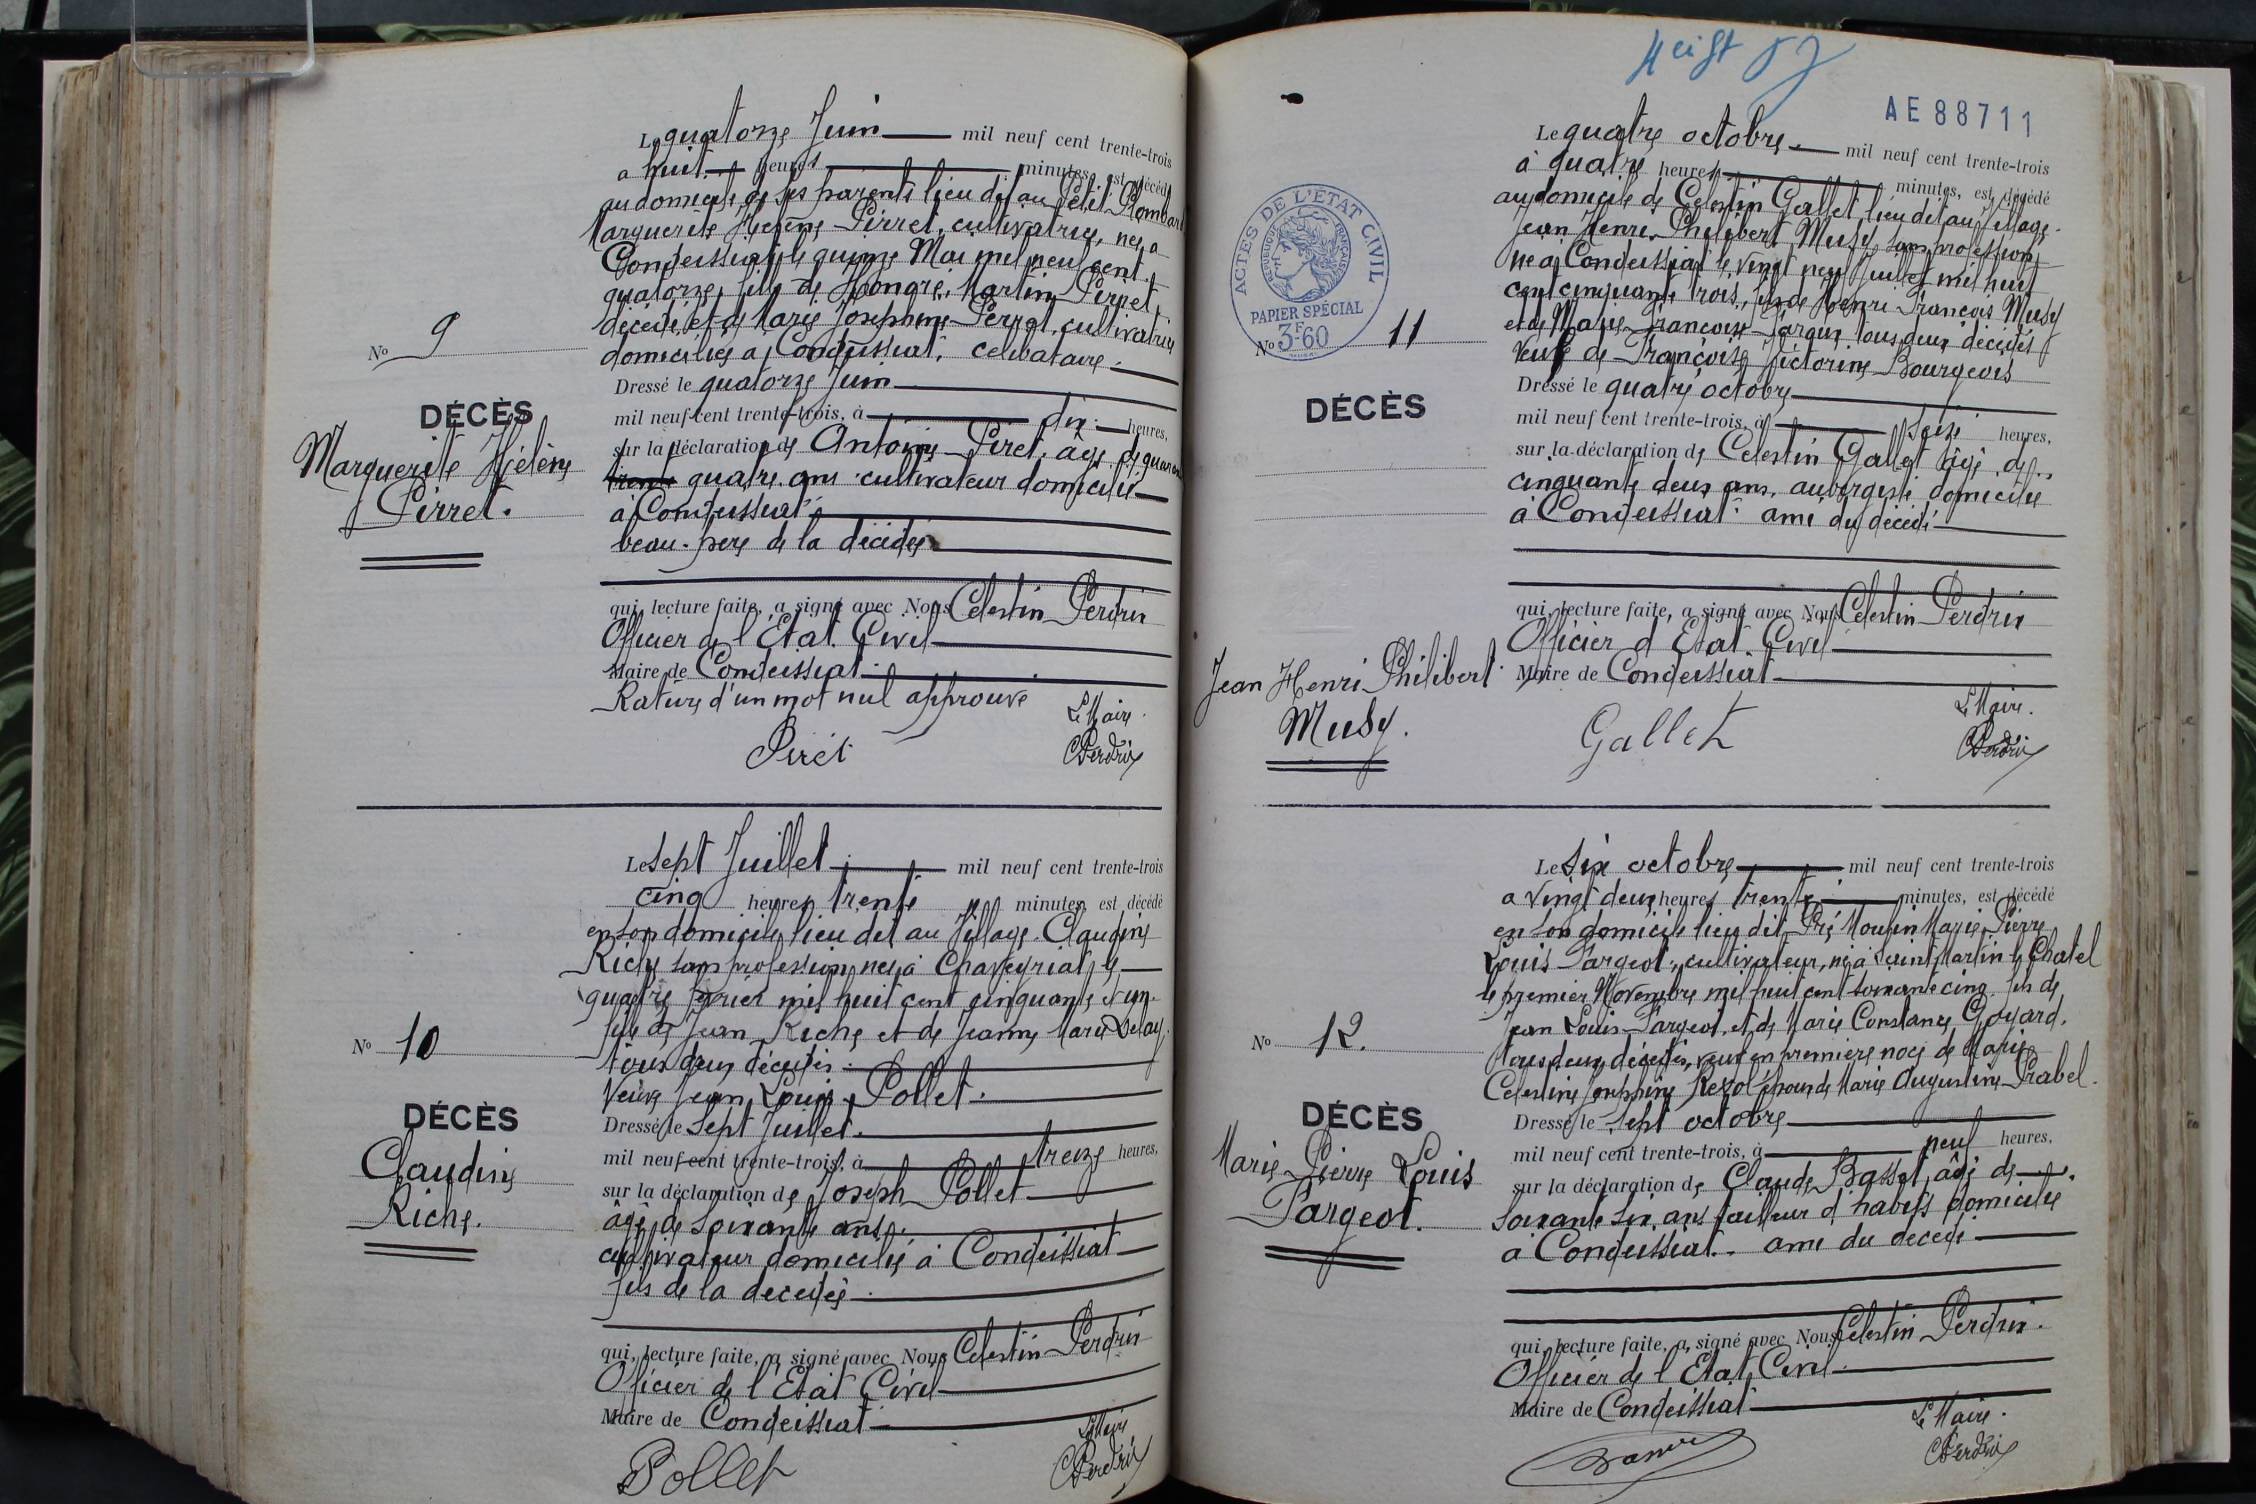 Le quatorze Juin mil neuf cent trente-trois
a huit heures minutes, est décédé
au domicile de ses parents lieu dit au Petit Plombard
Marguerite Hélène Pirret, cultivatrice, née à
Condeissiat le quinze Mai mil neuf cent
quatorze, fille de Honoré, Martin Pirret,
décédé, et de Marie Josephine Perrot, cultivatrice
domiciliée à Condeissiat, célibataire.
Nº 9
DÉCÈS
Marguerite Hélène
Pirret.
Dressé le quatorze Juin
mil neuf cent trente-trois, à dix heures,
sur la déclaration de Antoine Piret, âgé de quarante
trente quatre ans cultivateur domicilié
à Condeissiat
beau-père de la décédée
qui, lecture faite, a signé avec Nous Celestin Perdrix
Officier de l'Etat Civil
Maire de Condeissiat.
Rature d'un mot nul approuvé
Le Maire.
Piret
CPerdrix
Le sept Juillet mil neuf cent trente-trois
cinq heures trente minutes est décédé
en son domicile lieu dit au Village. Claudine
Riche sans profession, née à Chaveyriat, le
quatre février mil huit cent cinquante et un.
fille de Jean Riche et de Jeanne Marie Delay
tous deux décédés.
Veuve Jean Louis Pollet.
Nº 10
DÉCÈS
Claudine
Riche.
Dressé le sept Juillet.
mil neuf cent trente-trois, à treize heures,
sur la déclaration de Joseph Pollet
âgé de soixante ans.
cultivateur domicilié à Condeissiat
fils de la décédée
qui, lecture faite, a signé avec Nous Celestin Perdrix
Officier de l'Etat Civil
Maire de Condeissiat
Le Maire
Pollet
CPerdrix
AE88711
Le quatre octobre mil neuf cent trente-trois
à quatre heures minutes, est décédé
au domicile de Celestin Gallet, lieu dit au Village.
Jean Henri Philibert Musy sans profession
né à Condeissiat le vingt neuf Juillet mil huit
cent cinquante trois, fils de Henri François Musy
et de Marie Françoise tous deux décédés
veuf de Françoise Victorine Bourgeois
ACTES DE L'ETAT CIVIL
REPUBLIQUE FRANÇAISE
PAPIER SPÉCIAL
3F60
Nº 11
DÉCÈS
Jean Henri Philibert
Musy.
Dressé le quatre octobre
mil neuf cent trente-trois, à seize heures,
sur la déclaration de Celestin Gallet âgé de
cinquante deux ans, aubergiste domicilié
à Condeissiat ami du décédé
qui, lecture faite, a signé avec Nous Celestin Perdrix
Officier d Etat Civil
Maire de Condeissiat
Le Maire.
Gallet
CPerdrix
Le six octobre mil neuf cent trente-trois
a vingt deux heures trente minutes, est décédé
en son domicile lieu dit Pré Moulin Marie Pierre
Louis Pargeot, cultivateur, né à Saint Martin le Chatel
le premier Novembre mil huit cent soixante cinq. fils de
Jean Louis Pargeot, et de Marie Constance Goyard.
tous deux décédés, veuf en première noce de Marie
Celestine Josephine époux de Marie Augustine Prabel.
Nº 12.
DÉCÈS
Marie Pierre Louis
Pargeot.
Dressé le sept octobre
mil neuf cent trente-trois, à neuf heures,
sur la déclaration de Claude Basset, âgé de
soixante six ans tailleur d'habits domicilié
à Condeissiat. ami du décédé
qui, lecture faite, a signé avec Nous Celestin Perdrix.
Officier de l'Etat Civil
Maire de Condeissiat
Le Maire.
CPerdrix